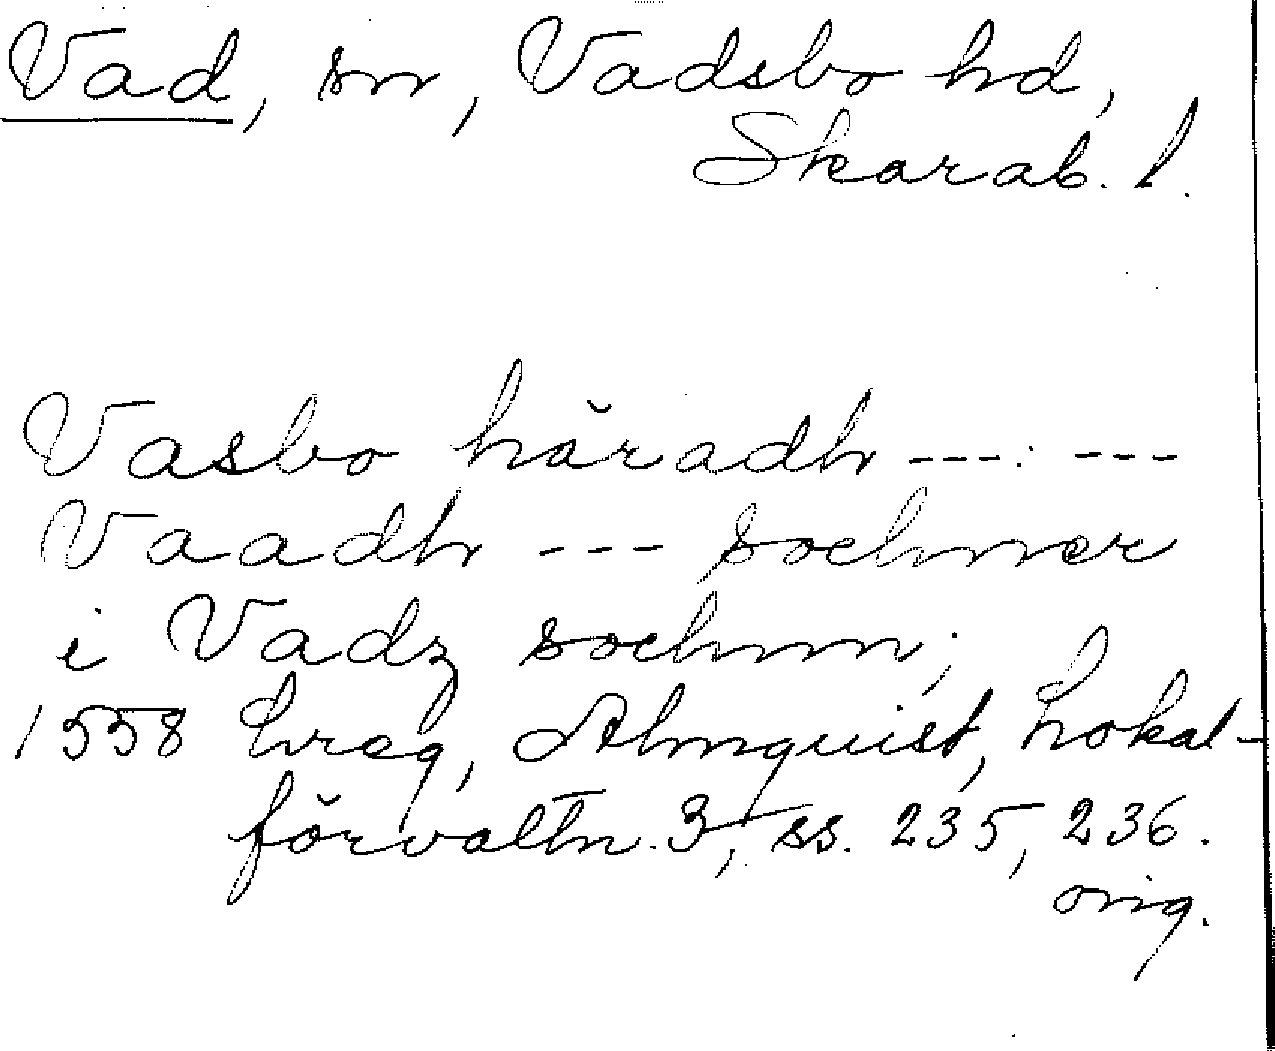 Vad, sn, Vadsbo hd,
Skarab. l.
Vasbo häradh ---- ---
Vaadh --- sochner
i Vadz sochnn;
1558 hreg, Almquist, Lokal-
förvaltn. 3, ss. 235, 236.
orig.